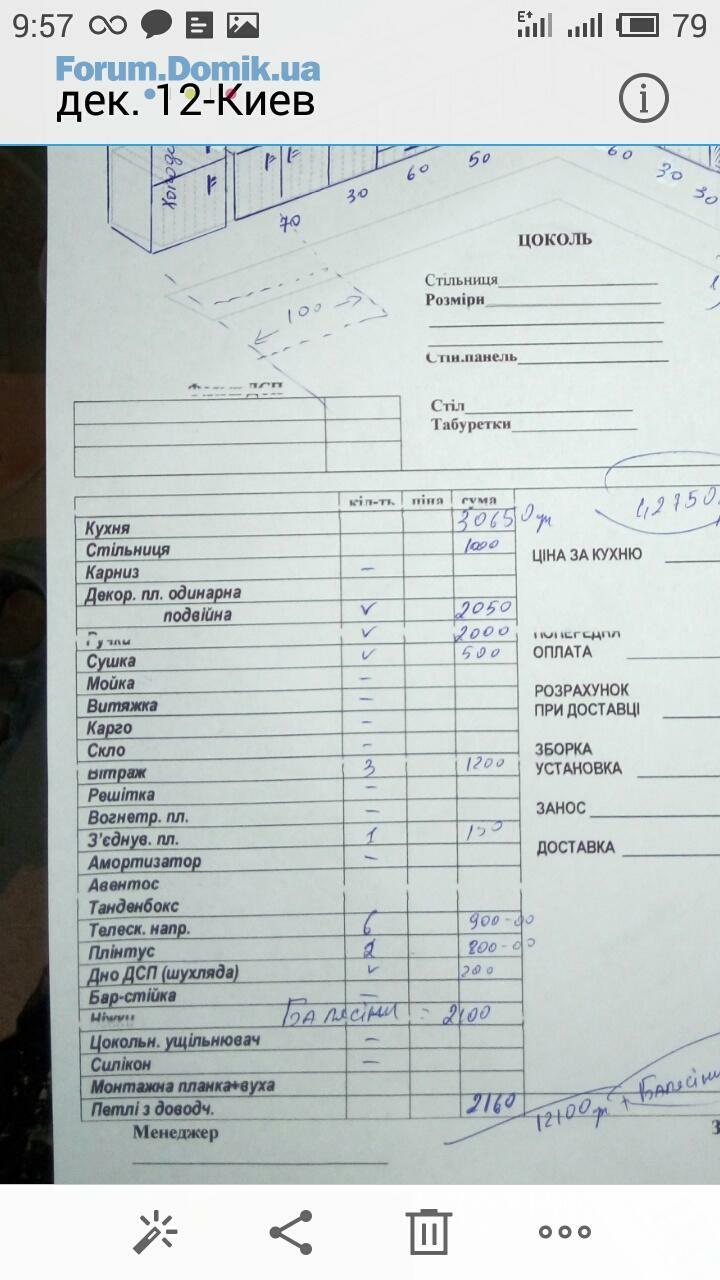 9:57 79
Forum.Domik.ua
дек. 12-Киев
70 30 60 50 60 30 30
100
ЦОКОЛЬ
Стільниця
Розміри
Стін.панель
Стіл
Табуретки
кіл-ть ціна сума
42750
Кухня 30650 гр
Стільниця 1000
ЦІНА ЗА КУХНЮ
Карниз –
Декор. пл. одинарна
подвійна v 2050
Ручки v 2000
ПОПЕРЕДНЯ
ОПЛАТА
Сушка v 500
Мойка –
РОЗРАХУНОК
ПРИ ДОСТАВЦІ
Витяжка –
Карго –
Скло –
ЗБОРКА
УСТАНОВКА
Вітраж 3 1200
Решітка –
ЗАНОС
Вогнетр. пл. –
З'єднув. пл. 1
ДОСТАВКА
Амортизатор –
Авентос
Танденбокс
Телеск. напр. 6 900-00
Плінтус 2 800-00
Дно ДСП (шухляда) v 200
Бар-стійка –
Балясіни = 2100
Цокольн. ущільнювач –
Силікон –
Монтажна планка+вуха
Петлі з доводч. 2160
12100 гр + Балясіни
Менеджер